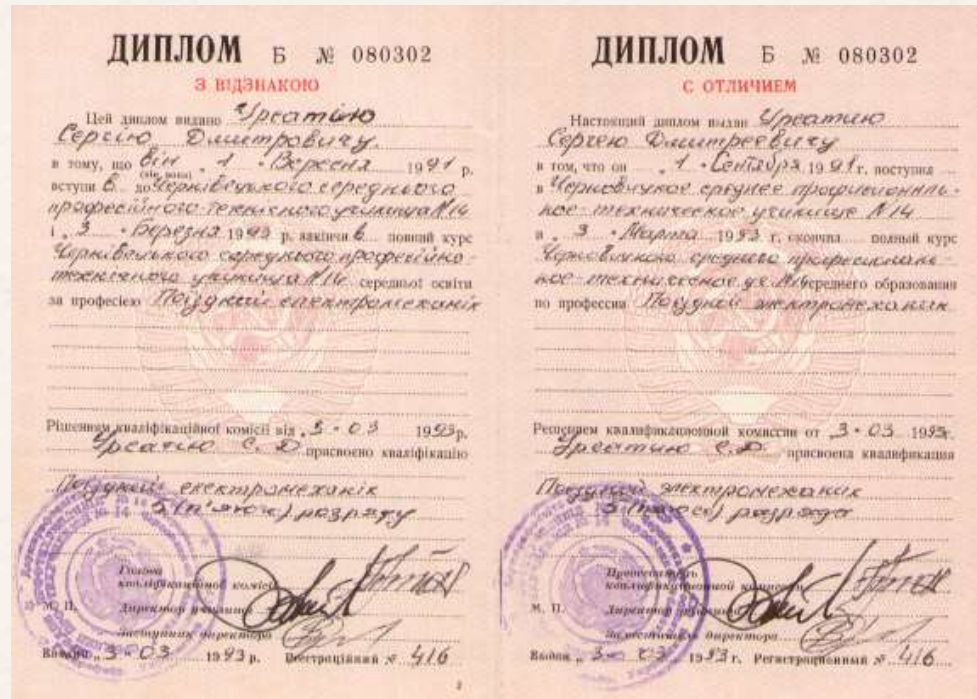 ДИПЛОМ Б № 080302
З ВІДЗНАКОЮ
Цей диплом видано Урсатію
Сергію Дмитровичу.
в тому, що він „ 1 " Вересня 1991 р.
(він, вона)
вступив до Чернівецького середнього
професійного-технічного училища №14
і „ 3 " березня 1993 р. закінчив повний курс
Чернівецького середнього професійно-
технічного училища №14 середньої освіти
за професією Поїздний електромеханік
Рішенням кваліфікаційної комісії від „3 " 03 1993р.
Урсатію С.Д. присвоєно кваліфікацію
Поїздний електромеханік
5 (п'ятого) розряду
Голова
кваліфікаційної комісії
М. П. Директор училища
Заступник директора
Видано „3 " 03 1993 р. Реєстраційний № 416
2
ДИПЛОМ Б № 080302
С ОТЛИЧИЕМ
Настоящий диплом выдан Урсатию
Сергею Дмитреевичу
в том, что он „ 1 " Сентября 1991 г. поступил
в Черновицкое среднее профессиональ-
ное-техническое училище №14
и „ 3 " Марта 1993 г. окончил полный курс
среднего
№14 среднего образования
по профессии Поездной электромеханик
Решением квалификационной комиссии от „3 " 03 1993г.
Урсатию С.Д. присвоена квалификация
Поездной электромеханик
5 (пятого) разряда
Председатель
квалификационной комиссии
М. П. Директор училища
Заместитель директора
Выдан „ 3 " 03 1993 г. Регистрационный № 416